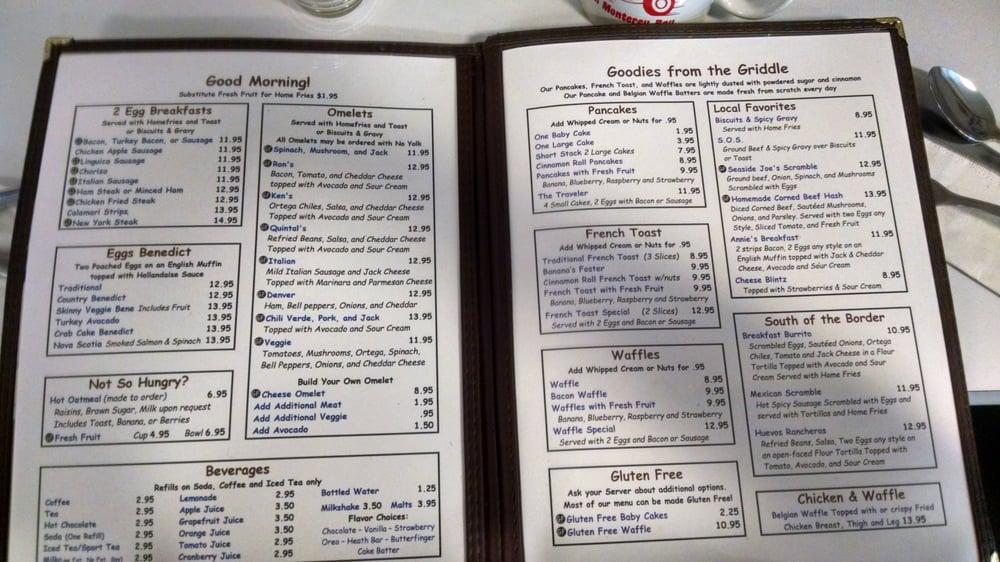 Monterey Bay
Good Morning!
Substitute Fresh Fruit for Home Fries $1.95
2 Egg Breakfasts
Served with Homefries and Toast
or Biscuits & Gravy
Bacon, Turkey Bacon, or Sausage 11.95
Chicken Apple Sausage 11.95
Linguica Sausage 11.95
Chorizo 11.95
Italian Sausage 11.95
Ham Steak or Minced Ham 12.95
Chicken Fried Steak 12.95
Calamari Strips, 13.95
New York Steak 14.95
Eggs Benedict
Two Poached Eggs on an English Muffin
topped with Hollandaise Sauce
Traditional 12.95
Country Benedict 12.95
Skinny Veggie Bene Includes Fruit 13.95
Turkey Avocado 13.95
Crab Cake Benedict 13.95
Nova Scotia Smoked Salmon & Spinach 13.95
Not So Hungry?
Hot Oatmeal (made to order) 6.95
Raisins, Brown Sugar, Milk upon request
Includes Toast, Banana, or Berries
Fresh Fruit Cup 4.95 Bowl 6.95
Omelets
Served with Homefries and Toast
or Biscuits & Gravy
All Omelets may be ordered with No Yolk
Spinach, Mushroom, and Jack 11.95
Ron's 12.95
Bacon, Tomato, and Cheddar Cheese
topped with Avocado and Sour Cream
Ken's 12.95
Ortega Chiles, Salsa, and Cheddar Cheese
Topped with Avocado and Sour Cream
Quintal's 12.95
Refried Beans, Salsa, and Cheddar Cheese
Topped with Avocado and Sour Cream
Italian 12.95
Mild Italian Sausage and Jack Cheese
Topped with Marinara and Parmesan Cheese
Denver 12.95
Ham, Bell peppers, Onions, and Cheddar
Chili Verde, Pork, and Jack 13.95
Topped with Avocado and Sour Cream
Veggie 11.95
Tomatoes, Mushrooms, Ortega, Spinach,
Bell Peppers, Onions, and Cheddar Cheese
Build Your Own Omelet
Cheese Omelet 8.95
Add Additional Meat 1.95
Add Additional Veggie .95
Add Avocado 1.50
Beverages
Refills on Soda, Coffee and Iced Tea only
Coffee 2.95
Tea 2.95
Hot Chocolate 2.95
Soda (One Refill) 2.95
Iced Tea/Sport Tea 2.95
2.95
Lemonade 2.95
Apple Juice 3.50
Grapefruit Juice 3.50
Orange Juice 3.50
Tomato Juice 2.95
Cranberry Juice 2.95
Bottled Water 1.25
Milkshake 3.50 Malts 3.95
Flavor Choices:
Chocolate - Vanilla - Strawberry
Oreo - Heath Bar - Butterfinger
Cake Batter
Goodies from the Griddle
Our Pancakes, French Toast, and Waffles are lightly dusted with powdered sugar and cinnamon
Our Pancake and Belgian Waffle Batters are made fresh from scratch every day
Pancakes
Add Whipped Cream or Nuts for .95
One Baby Cake 1.95
One Large Cake 3.95
Short Stack 2 Large Cakes 7.95
Cinnamon Roll Pancakes 8.95
Pancakes with Fresh Fruit 9.95
Banana, Blueberry, Raspberry and Strawberry
The Traveler 11.95
4 Small Cakes, 2 Eggs with Bacon or Sausage
French Toast
Add Whipped Cream or Nuts for .95
Traditional French Toast (3 Slices) 8.95
Banana's Foster 9.95
Cinnamon Roll French Toast w/nuts 9.95
French Toast with Fresh Fruit 9.95
Banana, Blueberry, Raspberry and Strawberry
French Toast Special (2 Slices) 12.95
Served with 2 Eggs and Bacon or Sausage
Waffles
Add Whipped Cream or Nuts for .95
Waffle 8.95
Bacon Waffle 9.95
Waffles with Fresh Fruit 9.95
Banana, Blueberry, Raspberry and Strawberry
Waffle Special 12.95
Served with 2 Eggs and Bacon or Sausage
Gluten Free
Ask your Server about additional options.
Most of our menu can be made Gluten Free!
Gluten Free Baby Cakes 2.25
Gluten Free Waffle 10.95
Local Favorites
Biscuits & Spicy Gravy 8.95
Served with Home Fries
S.O.S. 11.95
Ground Beef & Spicy Gravy over Biscuits
or Toast
Seaside Joe's Scramble 12.95
Ground beef, Onion, Spinach, and Mushrooms
Scrambled with Eggs
Homemade Corned Beef Hash 13.95
Diced Corned Beef, Sautéed Mushrooms,
Onions, and Parsley. Served with two Eggs any
Style, Sliced Tomato, and Fresh Fruit
Annie's Breakfast 11.95
2 strips Bacon, 2 Eggs any style on an
English Muffin topped with Jack & Cheddar
Cheese, Avocado and Sour Cream
Cheese Blintz 8.95
Topped with Strawberries & Sour Cream
South of the Border
Breakfast Burrito 10.95
Scrambled Eggs, Sautéed Onions, Ortega
Chiles, Tomato and Jack Cheese in a Flour
Tortilla Topped with Avocado and Sour
Cream Served with Home Fries
Mexican Scramble 11.95
Hot Spicy Sausage Scrambled with Eggs and
served with Tortillas and Home Fries
Huevos Rancheros 12.95
Refried Beans, Salsa, Two Eggs any style on
an open-faced Flour Tortilla Topped with
Tomato, Avocado, and Sour Cream
Chicken & Waffle
Belgian Waffle Topped with or crispy Fried
Chicken Breast, Thigh and Leg 13.95